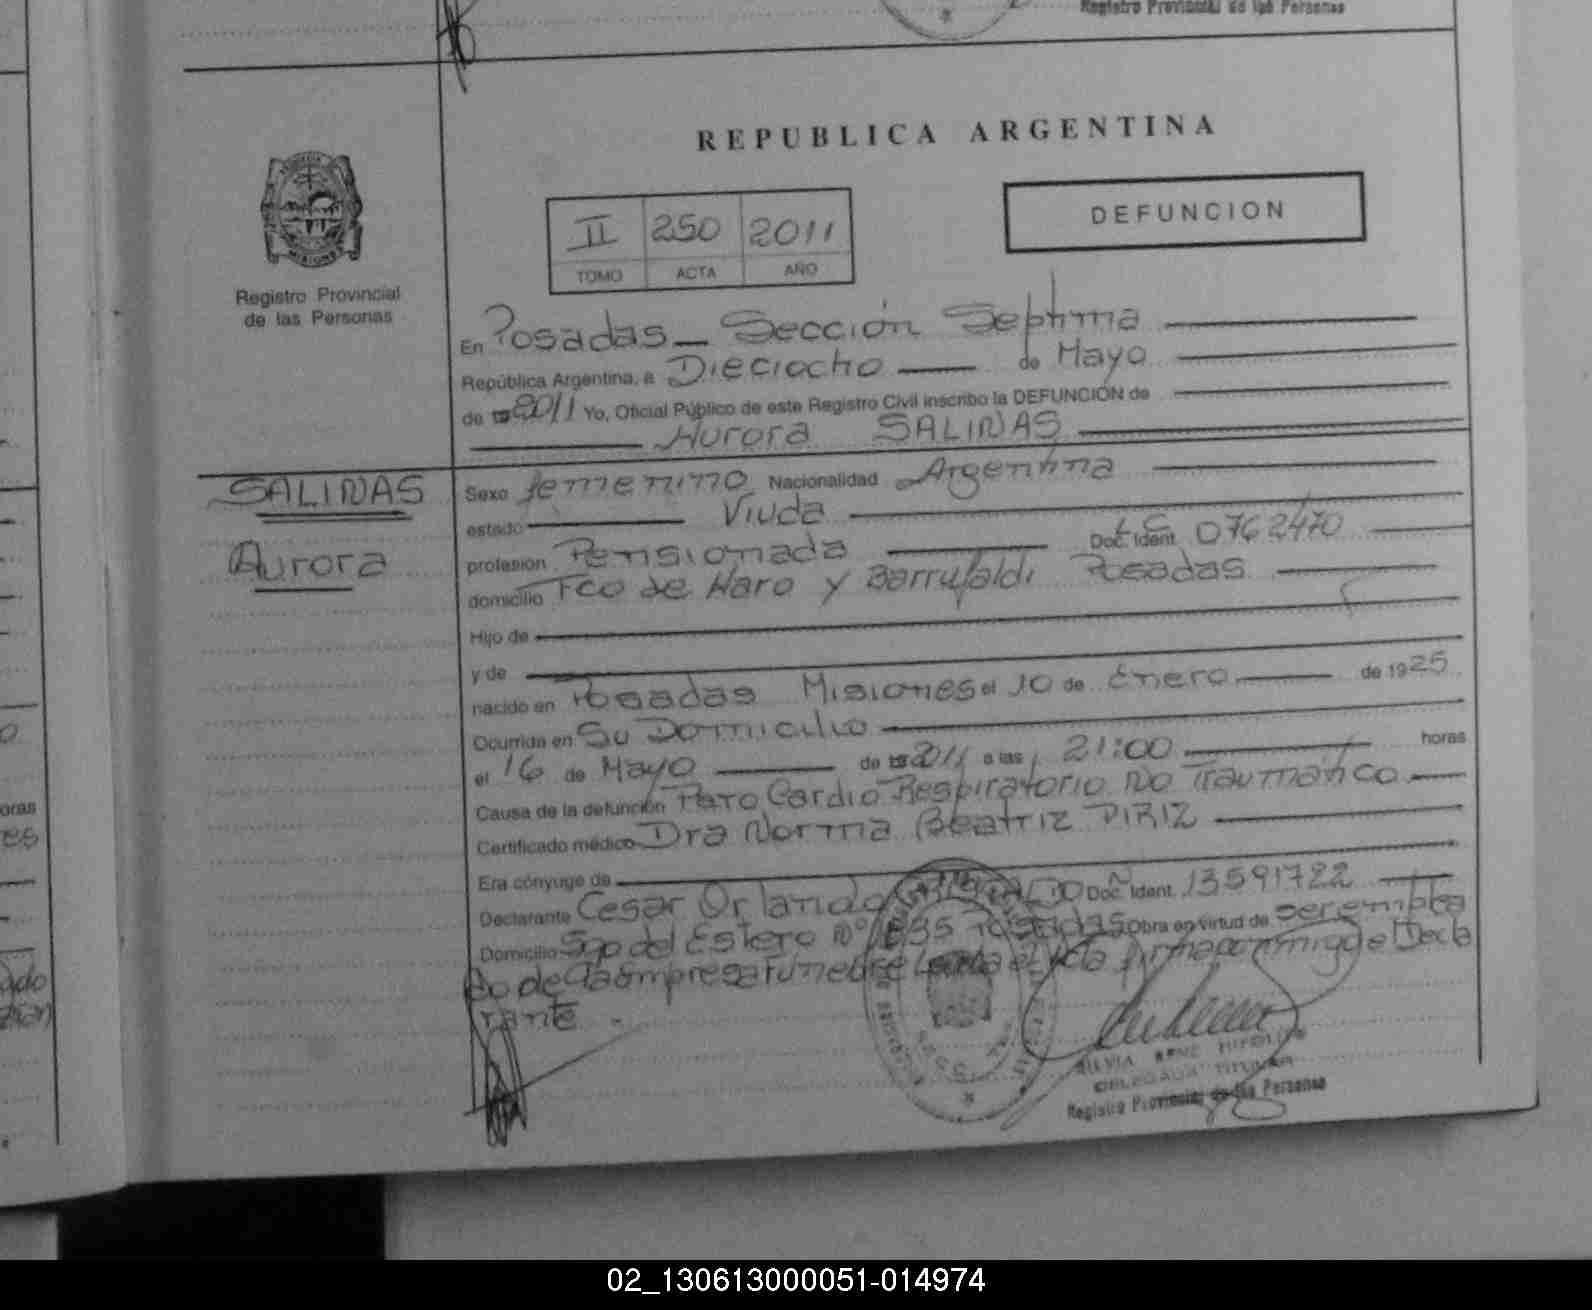 Registro Provincial de las Personas
REPUBLICA ARGENTINA
MISIONES
Registro Provincial
de las Personas
II 250 2011
TOMO ACTA AÑO
DEFUNCION
En Posadas - Sección Septima
República Argentina, a Dieciocho de Mayo
de 19 2011 Yo, Oficial Público de este Registro Civil inscribo la DEFUNCIÓN de
Aurora SALINAS
SALINAS
Aurora
Sexo femenino Nacionalidad Argentina
estado Viuda
profesión Pensionada Doc. Ident. L C 0762470
domicilio Fco de Haro y Barrufaldi Posadas
Hijo de
y de
nacido en Posadas Misiones el 10 de Enero de 1925
Ocurrida en Su Domicilio
el 16 de Mayo de 19 2011 a las 21:00 horas
Causa de la defunción Paro Cardio Respiratorio No Traumático
Certificado médico Dra Norma Beatriz PIRIZ
Era cónyuge de
Declarante Cesar Orlando Doc. Ident. 13591722
Domicilio Sgo del Estero Nº Posadas Obra en virtud de ser emplea
do de la empresa funebre el Acta firma conmigo el Decla
rante
SILVIA RENE
DELEGADA TITULAR
Registro Provincial de las Personas
oras
es
ado
02_130613000051-014974